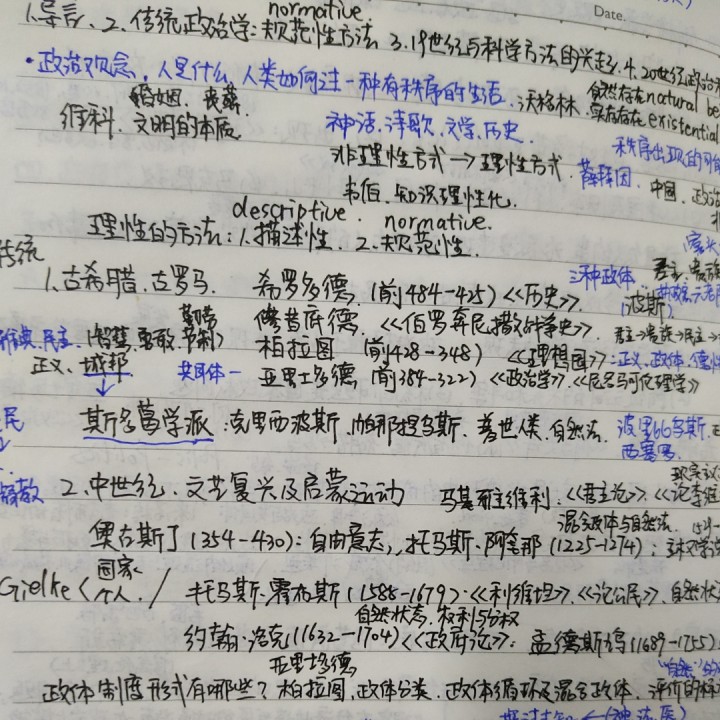 normative.
1.导言. 2.传统政治学:规范性方法 3.19世纪与科学方法的兴起. 4.20世纪政治
Date.
·政治观念, 人是什么, 人类如何过一种有秩序的生活. 沃格林. 自然存在natural be
婚姻. 丧葬. 实存存在existential
维科. 文明的本质. 神话.诗歌.文学.历史. 秩序出现的可
非理性方式→理性方式. 中国.政治
韦伯.知识理性化.
descriptive. normative.
理性的方法:1.描述性. 2.规范性.
传统
1.古希腊.古罗马. 希罗多德. (前484-425)《历史》. 三种政体. 君主.贵族
(波斯)
修昔底德.《伯罗奔尼撒战争史》. 君主→贵族→民主→
民主.(智慧.勇敢.节制) 柏拉图 (前428-348) 《理想国》:正义.政体.德性
正义.城邦 共同体一 亚里士多德 (前384-322)《政治学》《尼各马可伦理学》
民 斯多葛学派.克里西波斯.帕那提乌斯.普世人类.自然法. 波里比乌斯.
西塞罗.
2.中世纪.文艺复兴及启蒙运动 马基雅维利:《君主论》《论李维
混合政体与自然法.
奥古斯丁(354-430):自由意志, 托马斯·阿奎那(1225-1274):
Gielke〈国家 个人. / 托马斯·霍布斯(1588-1679)·《利维坦》.《论公民》.自然状
自然状态.权利与分权
约翰·洛克(1632-1704)《政府论》: 孟德斯鸠(1689-1755).
亚里士多德 "自然"
政体制度形式有哪些?柏拉图.政体分类.政体循环及混合政体.评价的标